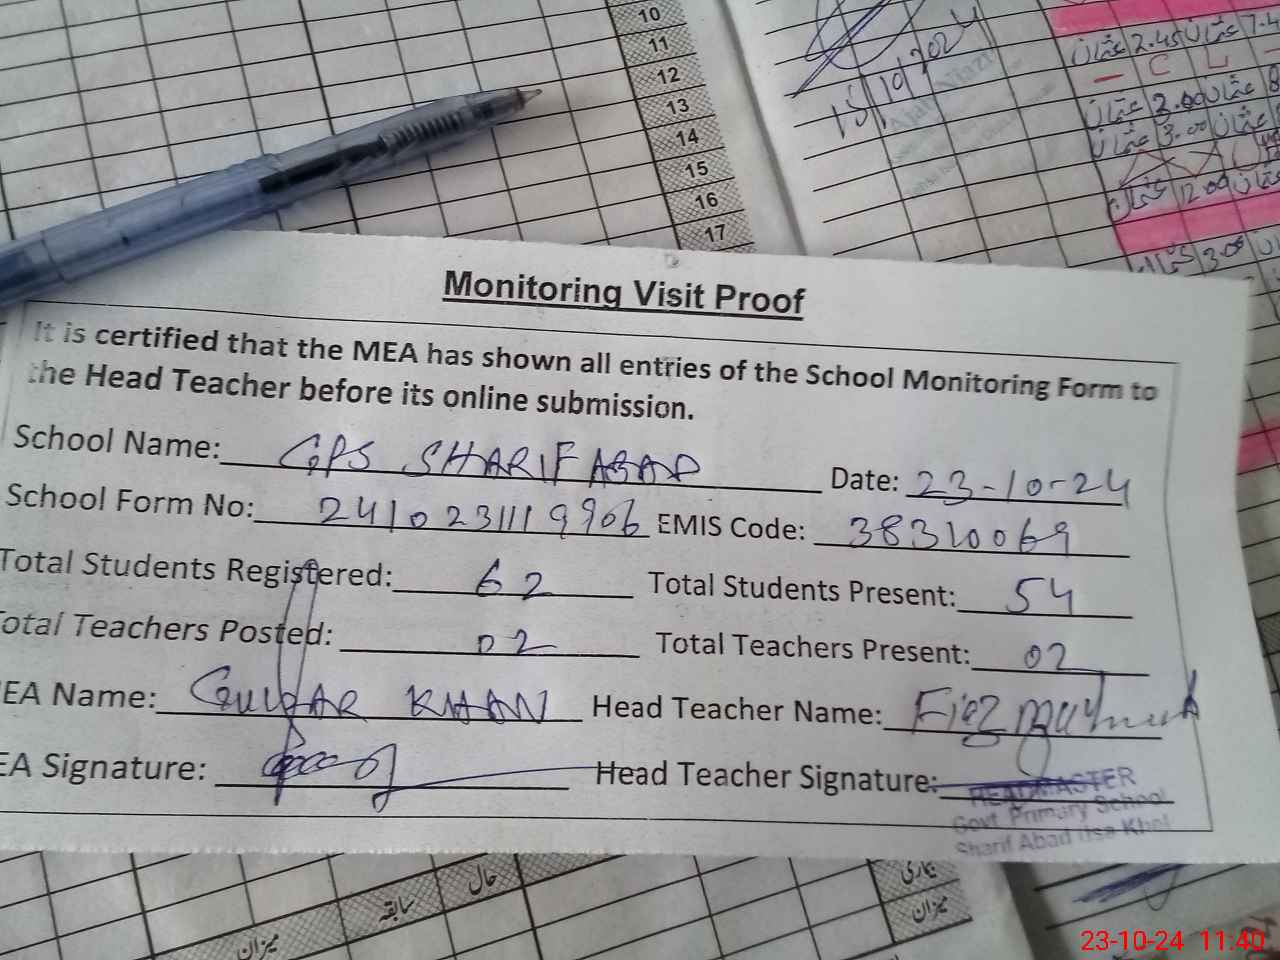 10
11
12
13
14
15
16
17
15/10/2024
عثمان 2.45 عثمان 7.4
C L
عثمان 3.00 عثمان 8
عثمان 3.00 عثمان
عثمان 12.00
3.00
Monitoring Visit Proof
It is certified that the MEA has shown all entries of the School Monitoring Form to
the Head Teacher before its online submission.
School Name: GPS SHARIF ABAD Date: 23-10-24
School Form No: 2410231119906 EMIS Code: 38310069
Total Students Registered: 62 Total Students Present: 54
otal Teachers Posted: 02 Total Teachers Present: 02
EA Name: GULZAR KHAN Head Teacher Name:
EA Signature: Head Teacher Signature:
HEADMASTER
Govt. Primary School
Sharif Abad Iisa Khel
میزان سابقہ حال
میزان
23-10-24 11:40